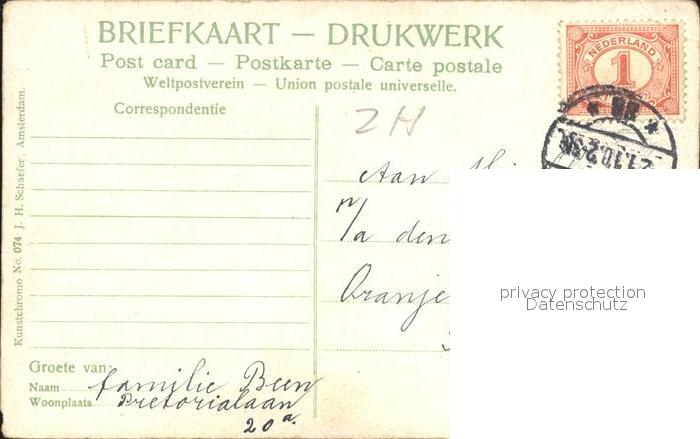 BRIEFKAART — DRUKWERK
Post card — Postkarte — Carte postale
Weltpostverein — Union postale universelle.
Correspondentie
NEDERLAND
1
2H
Aan
p/a den
Oranje
privacy protection
Datenschutz
Kunstchromo No. 074 J. H. Schaefer, Amsterdam.
Groete van:
Naam familie Been
Woonplaats Pretorialaan
20a.